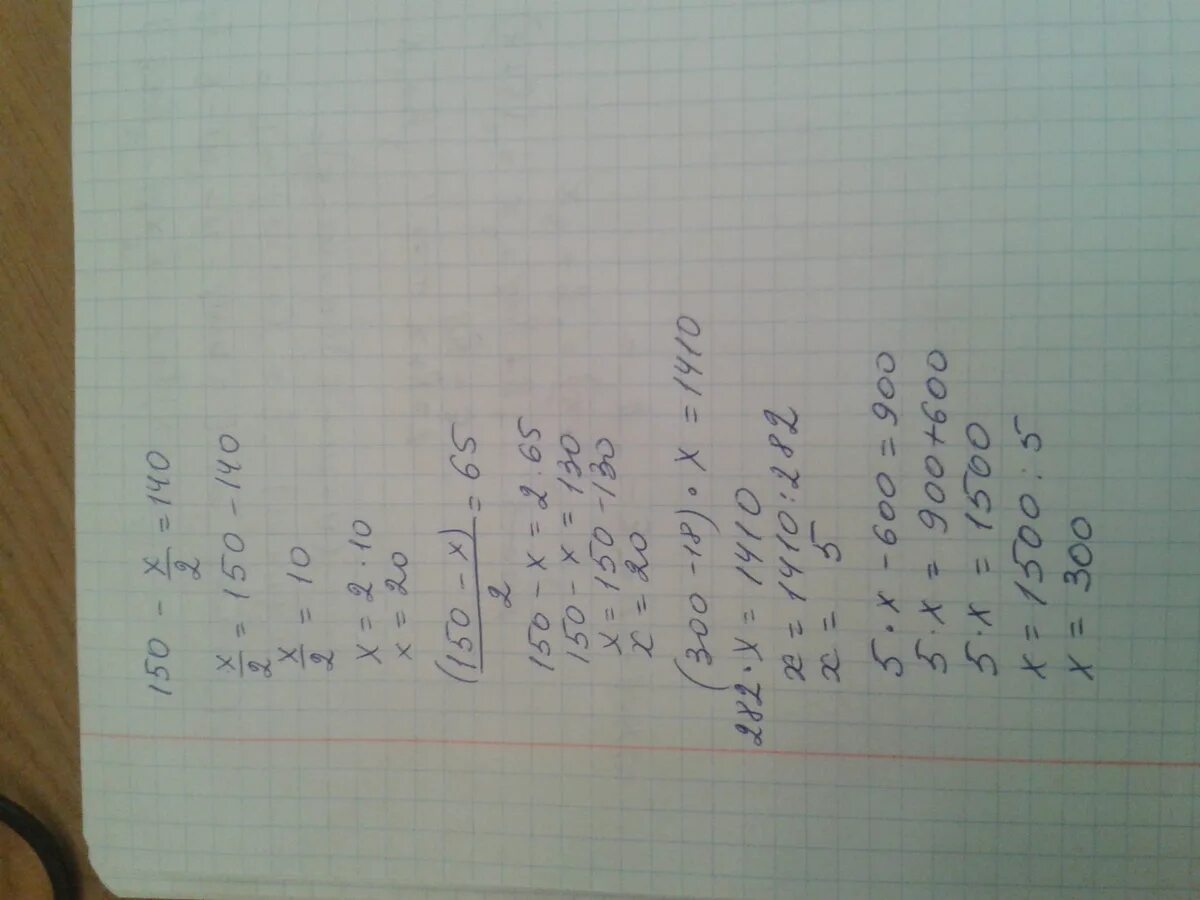 150 - x/2 = 140
x/2 = 150 - 140
x/2 = 10
x = 2 · 10
x = 20
(150 - x)/2 = 65
150 - x = 2 · 65
150 - x = 130
x = 150 - 130
x = 20
(300 - 18) · x = 1410
282 · x = 1410
x = 1410 : 282
x = 5
5 · x - 600 = 900
5 · x = 900 + 600
5 · x = 1500
x = 1500 : 5
x = 300